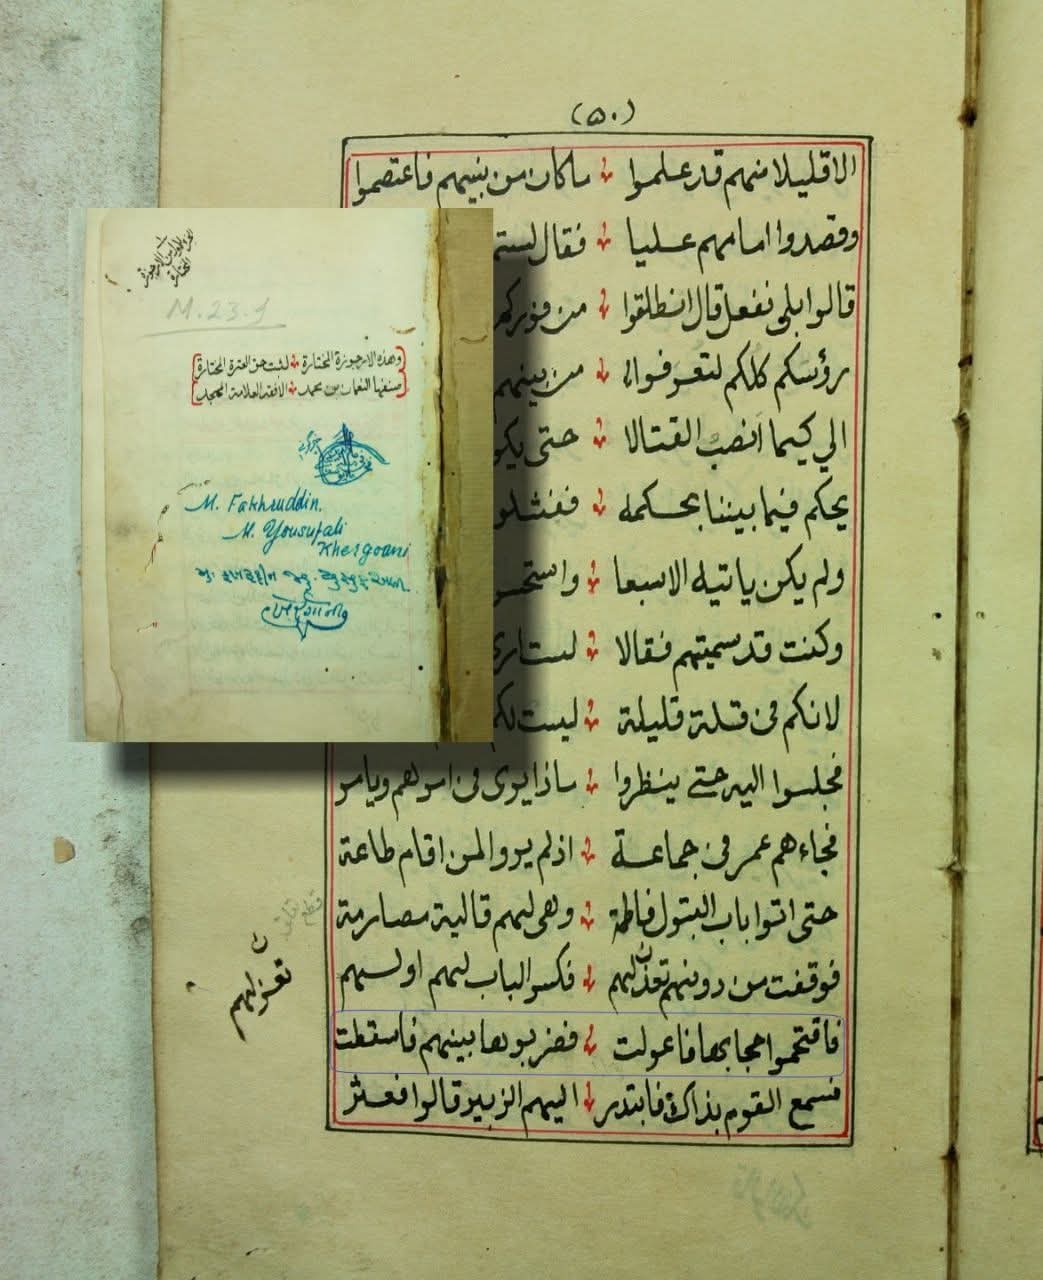 (۵۰)
الا قليلا منهم قد علموا ؞ ماكان من بينهم فاعتصموا
وقصدوا امامهم عليا ؞ فقال لستم
قالوا بلى نفعل قال انطلقوا ؞ من فوركم
رؤسكم كلكم لتعرفوا ؞ من بينهم
الي كيما انصب القتالا ؞ حتى
يحكم فيما بيننا بحكمه ؞ ففشلوا
ولم يكن ياتيه الا سبعا ؞
وكنت قد سميتهم فقالا ؞
لانكم فى قلة قليلة ؞ ليست لكم
فجلسوا اليه حتى ينظروا ؞ ماذا يرى فى امرهم ويامر
فجاءهم عمر فى جماعة ؞ اذ لم يروا لمن اقام طاعة
حتى اتوا باب البتول فاطمة ؞ وهى لهم قالية مصارمة
فوقفت من دونهم لهم ؞ فكسر الباب لهم اولهم
فاقتحموا حجابها فاعولت ؞ فضربوها بينهم فاسقطت
فسمع القوم بذاك فابتدر ؞ اليهم الزبير قالوا فعثر
M. 23.1
وهذه الارجوزة المختارة ؞ لثبت حق العترة المختارة
صنفها النعمان بن محمد ؞ الافقه العلامة الممجد
M. Fakhruddin.
M. Yousufali
Khergoani